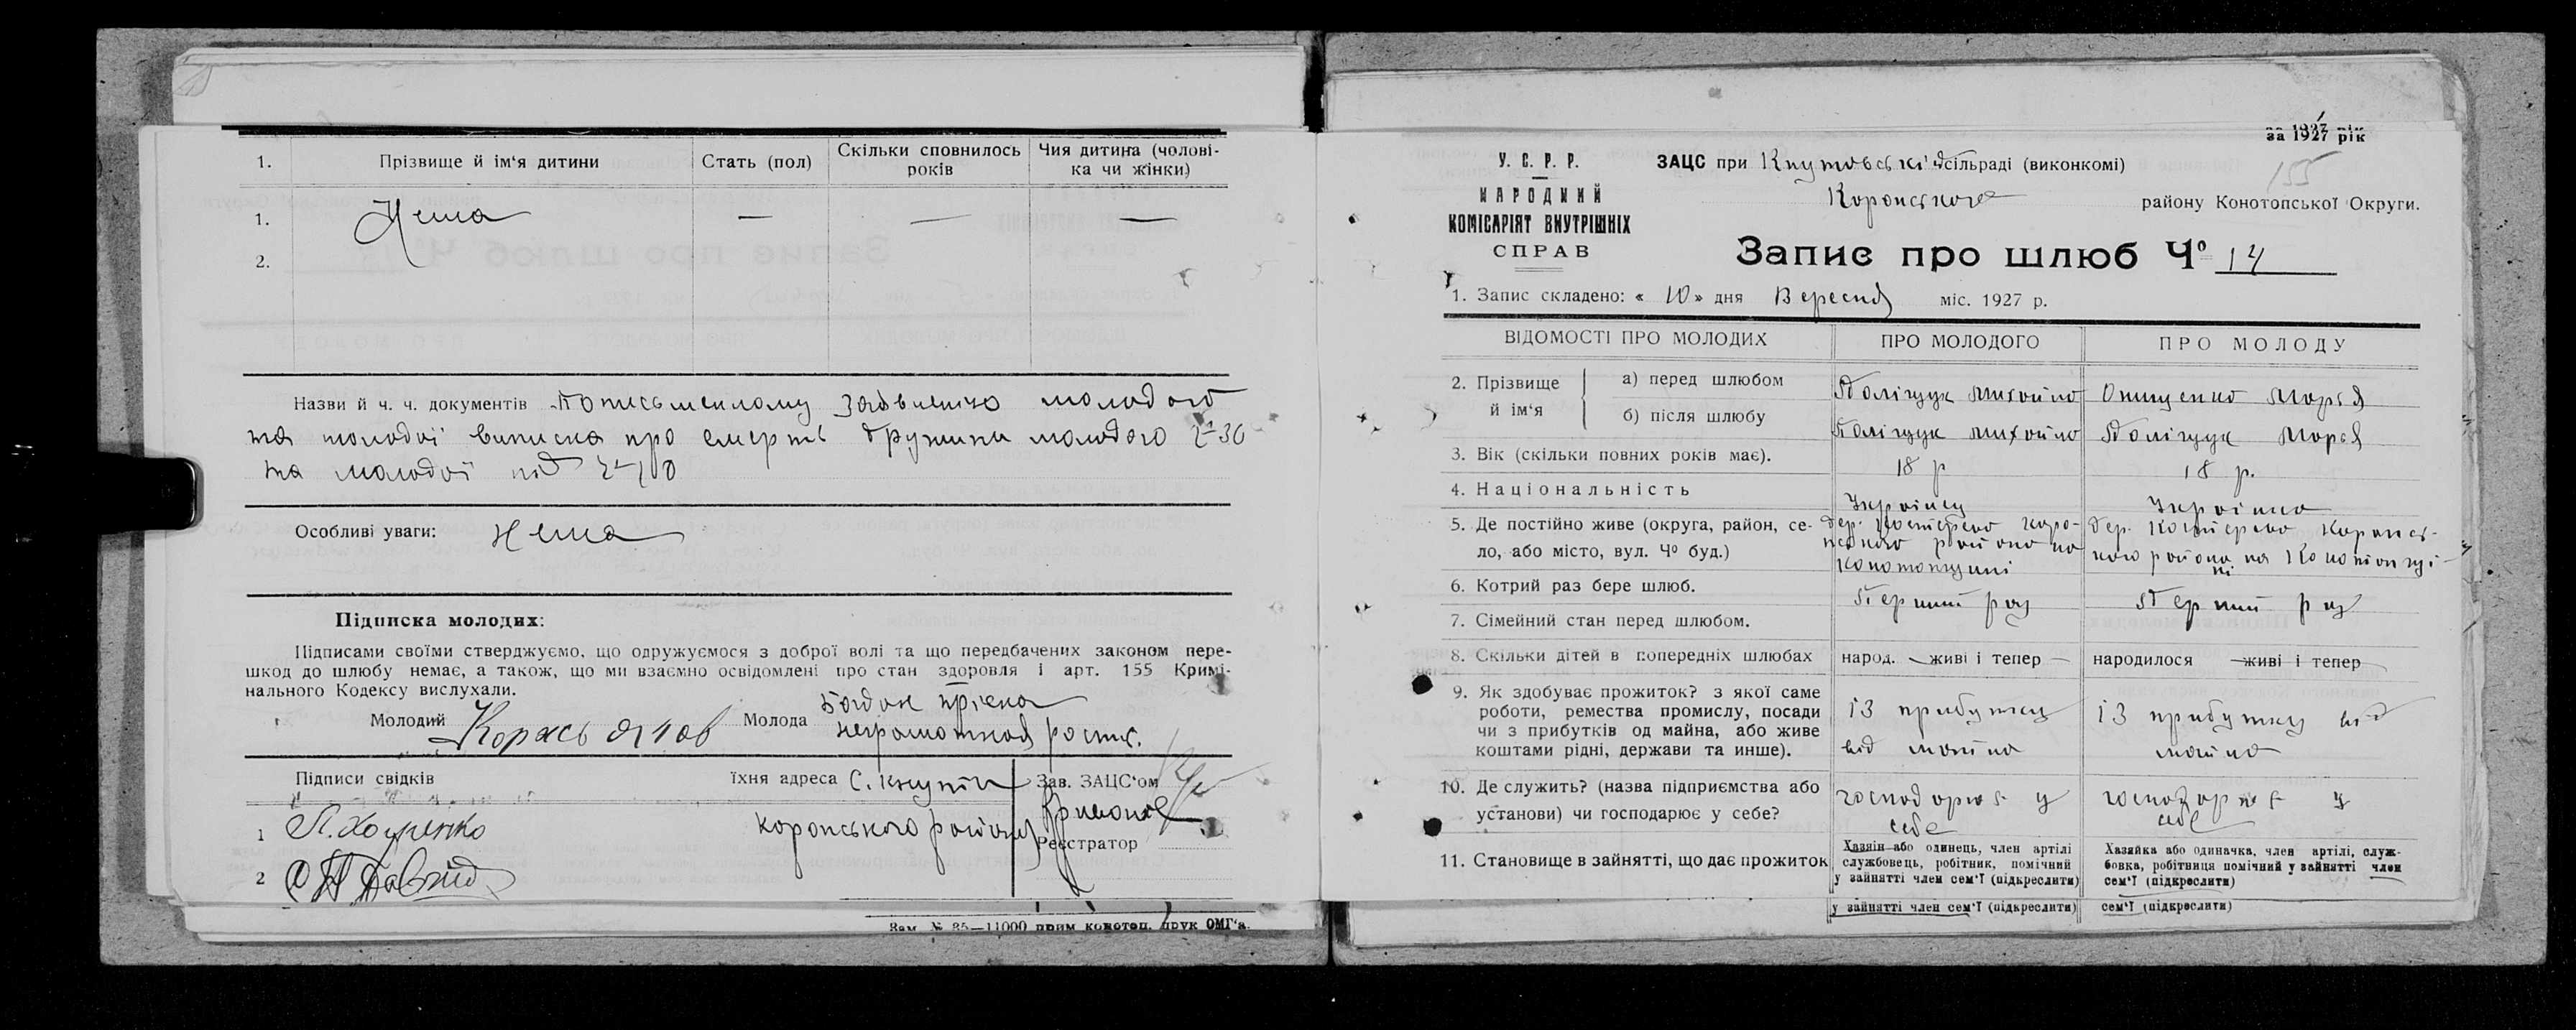 1. Прізвище й ім'я дитини Стать (пол) Скільки сповнилось років Чия дитина (чоловіка чи жінки)
1. Нема — — —
2.
Назви й ч. ч. документів По письменному заявленню молодого
та молодої виписка про смерть дружини молодого
та молодої під
Особливі уваги: Нема
Підписка молодих:
Підписами своїми стверджуємо, що одружуємося з доброї волі та що передбачених законом пере-
шкод до шлюбу немає, а також, що ми взаємно освідомлені про стан здоровля і арт. 155 Кримі-
нального Кодексу вислухали.
Молодий Карась Яков Молода
неграмотная
Підписи свідків їхня адреса С. Кнути Зав. ЗАЦС'ом
1
Коропського району
Реєстратор
2
Зам. № 85—11000 прим конотоп. друк ОМГ'а.
за 1927 рік
155
У. С. Р. Р.
НАРОДНИЙ
КОМІСАРІЯТ ВНУТРІШНІХ
СПРАВ
ЗАЦС при Кнутовській сільраді (виконкомі)
Коропського району Конотопської Округи.
Запис про шлюб Ч° 14
1. Запис складено: « 10 » дня Вересня міс. 1927 р.
ВІДОМОСТІ ПРО МОЛОДИХ ПРО МОЛОДОГО ПРО МОЛОДУ
2. Прізвище й ім'я
а) перед шлюбом Поліщук Михойло Онищенко Марья
б) після шлюбу Поліщук Михойло Поліщук Марья
3. Вік (скільки повних років має). 18 р 18 р.
4. Національність Українец Українка
5. Де постійно живе (округа, район, се-
ло, або місто, вул. Ч° буд.)
дер. Коропського району на Конотопщині
дер. Коропського района на Конотопщині
6. Котрий раз бере шлюб. Перший раз Перший раз
7. Сімейний стан перед шлюбом.
8. Скільки дітей в попередніх шлюбах народ. — живі і тепер — народилося — живі і тепер —
9. Як здобуває прожиток? з якої саме
роботи, ремества промислу, посади
чи з прибутків од майна, або живе
коштами рідні, держави та инше).
із прибутку від майна
із прибутку від майна
10. Де служить? (назва підприємства або
установи) чи господарює у себе?
господарює у себе
господарює у себе
11. Становище в зайнятті, що дає прожиток
Хазяін або одинець, член артілі
службовець, робітник, помічний
у зайнятті член сем'ї (підкреслити)
Хазяйка або одиначка, член артілі, служ-
бовка, робітниця помічний у зайнятті член
сем'ї (підкреслити)
у зайнятті член сем'ї (підкреслити)
сем'ї (підкреслити)